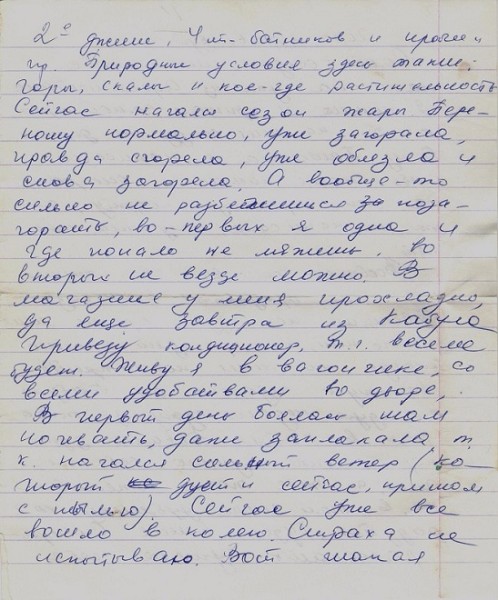 2е джине, 4 м-батников и прочее и
пр. Природные условия здесь такие:
горы, скалы и кое-где растительность
Сейчас начался сезон жары Пере-
ношу нормально, уже загорала,
правда сгорела, уже облезла и
снова загорела. А вообще-то
сильно не разбежишься за поза-
горать, во-первых я одна и
где попало не ляжешь. Во
вторых не везде можно. В
магазине у меня прохладно,
да еще завтра из Кабула
привезу кондиционер, т.г. весело
будет. Живу я в вагончике, со
всеми удобствами во дворе,
В первый день боялась там
ночевать, даже заплакала т.
к. начался сильный ветер (ко-
торый дует и сейчас, прямом
с пылью). Сейчас уже все
вошло в колею. Страха не
испытываю. Вот такая